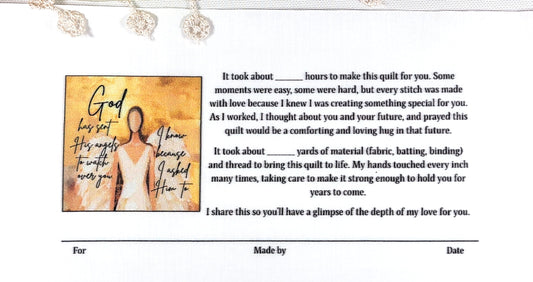 God
has sent
His angels
to watch
over you
I know
because
I asked
Him to
It took about ______ hours to make this quilt for you. Some
moments were easy, some were hard, but every stitch was made
with love because I knew I was creating something special for you.
As I worked, I thought about you and your future, and prayed this
quilt would be a comforting and loving hug in that future.
It took about ______ yards of material (fabric, batting, binding)
and thread to bring this quilt to life. My hands touched every inch
many times, taking care to make it strong enough to hold you for
years to come.
I share this so you'll have a glimpse of the depth of my love for you.
For Made by Date